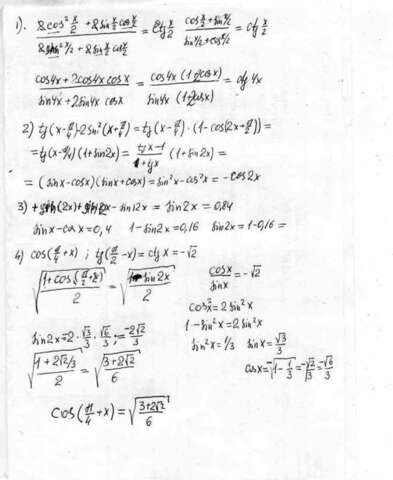 1). (2cos² x/2 + 2sin x/2 cos x/2) / (2sin² x/2 + 2sin x/2 cos x/2) = ctg x/2 · (cos x/2 + sin x/2) / (sin x/2 + cos x/2) = ctg x/2
(cos4x + 2cos4x cosx) / (sin4x + 2sin4x cosx) = (cos4x (1+2cosx)) / (sin4x (1+2cosx)) = ctg 4x
2) tg(x-π/4)·2sin²(x+π/4) = tg(x-π/4)·(1-cos(2x+π/2)) =
= tg(x-π/4)(1+sin2x) = (tgx-1)/(1+tgx) (1+sin2x) =
= (sinx-cosx)(sinx+cosx) = sin²x-cos²x = -cos2x
3) sin2x = sin2x = 0,84
sinx-cosx = 0,4 1-sin2x = 0,16 sin2x = 1-0,16 =
4) cos(π/4+x) ; tg(π/2-x) = ctgx = -√2
√((1+cos(π/2+2x))/2) = √((1-sin2x)/2)
cosx/sinx = -√2
cos²x = 2sin²x
1-sin²x = 2sin²x
sin²x = 1/3 sinx = √3/3
cosx = -√(1-1/3) = -√2/√3 = -√6/3
sin2x = -2·√3/3·√6/3 = -2√2/3
√((1+2√2/3)/2) = √((3+2√2)/6)
cos(π/4+x) = √((3+2√2)/6)